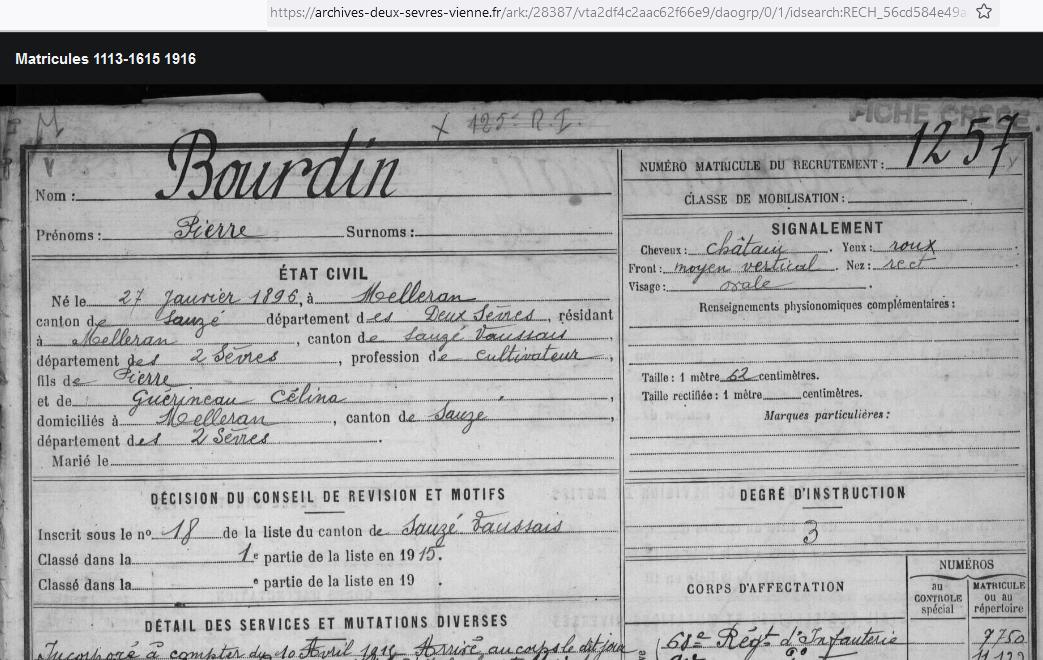 https://archives-deux-sevres-vienne.fr/ark:/28387/vta2df4c2aac62f66e9/daogrp/0/1/idsearch:RECH_56cd584e49a
Matricules 1113-1615 1916
M
X 125e R.I.
FICHE CREEE
V
Nom : Bourdin
Prénoms : Pierre Surnoms :
ÉTAT CIVIL
Né le 27 Janvier 1896, à Melleran
canton de Sauzé département des Deux Sèvres, résidant
à Melleran, canton de Sauzé Vaussais
département des 2 Sèvres, profession de cultivateur,
fils de Pierre
et de Guérineau Célina,
domiciliés à Melleran, canton de Sauzé,
département des 2 Sèvres.
Marié le
DÉCISION DU CONSEIL DE REVISION ET MOTIFS
Inscrit sous le no 18 de la liste du canton de Sauzé Vaussais
Classé dans la 1e partie de la liste en 1915.
Classé dans la e partie de la liste en 19 .
DÉTAIL DES SERVICES ET MUTATIONS DIVERSES
Incorporé à compter du 10 Avril 1915 Arrivé au corps le dit jour
NUMÉRO MATRICULE DU RECRUTEMENT : 1257
CLASSE DE MOBILISATION :
SIGNALEMENT
Cheveux : châtain. Yeux : roux.
Front : moyen vertical. Nez : rect.
Visage : ovale.
Renseignements physionomiques complémentaires :
Taille : 1 mètre 62 centimètres.
Taille rectifiée : 1 mètre centimètres.
Marques particulières :
DEGRÉ D'INSTRUCTION
3
CORPS D'AFFECTATION
NUMÉROS
au CONTROLE spécial
MATRICULE ou au répertoire
68e Régt d'Infanterie 9750